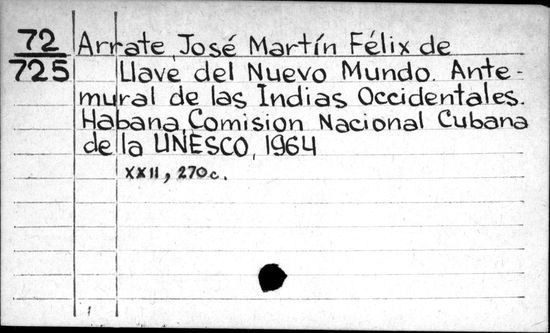 72 Arrate, José Martín Félix de
725 Llave del Nuevo Mundo. Ante-
mural de las Indias Occidentales.
Habana, Comision Nacional Cubana
de la UNESCO, 1964
XXII, 270 c.